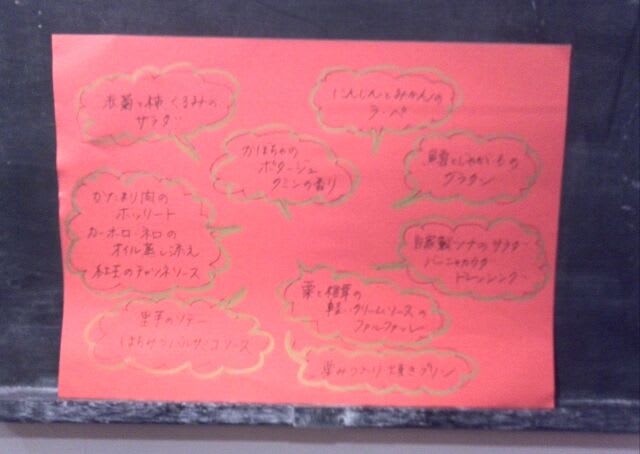 春菊と柿、くるみの
サラダ
にんじんとみかんの
ラペ
かぼちゃの
ポタージュ
クミンの香り
鱈とじゃがいもの
グラタン
かたまり肉の
ボッリート
カーボロ・ネロの
オイル蒸し添え
紅玉のチレンネソース
自家製ツナのサラダ
バーニャカウダ
ドレッシング
栗と椎茸の
軽いクリームソースの
ファルファッレ
里芋のソテー
はちみつバルサミコソース
栗みつ入り焼きプリン